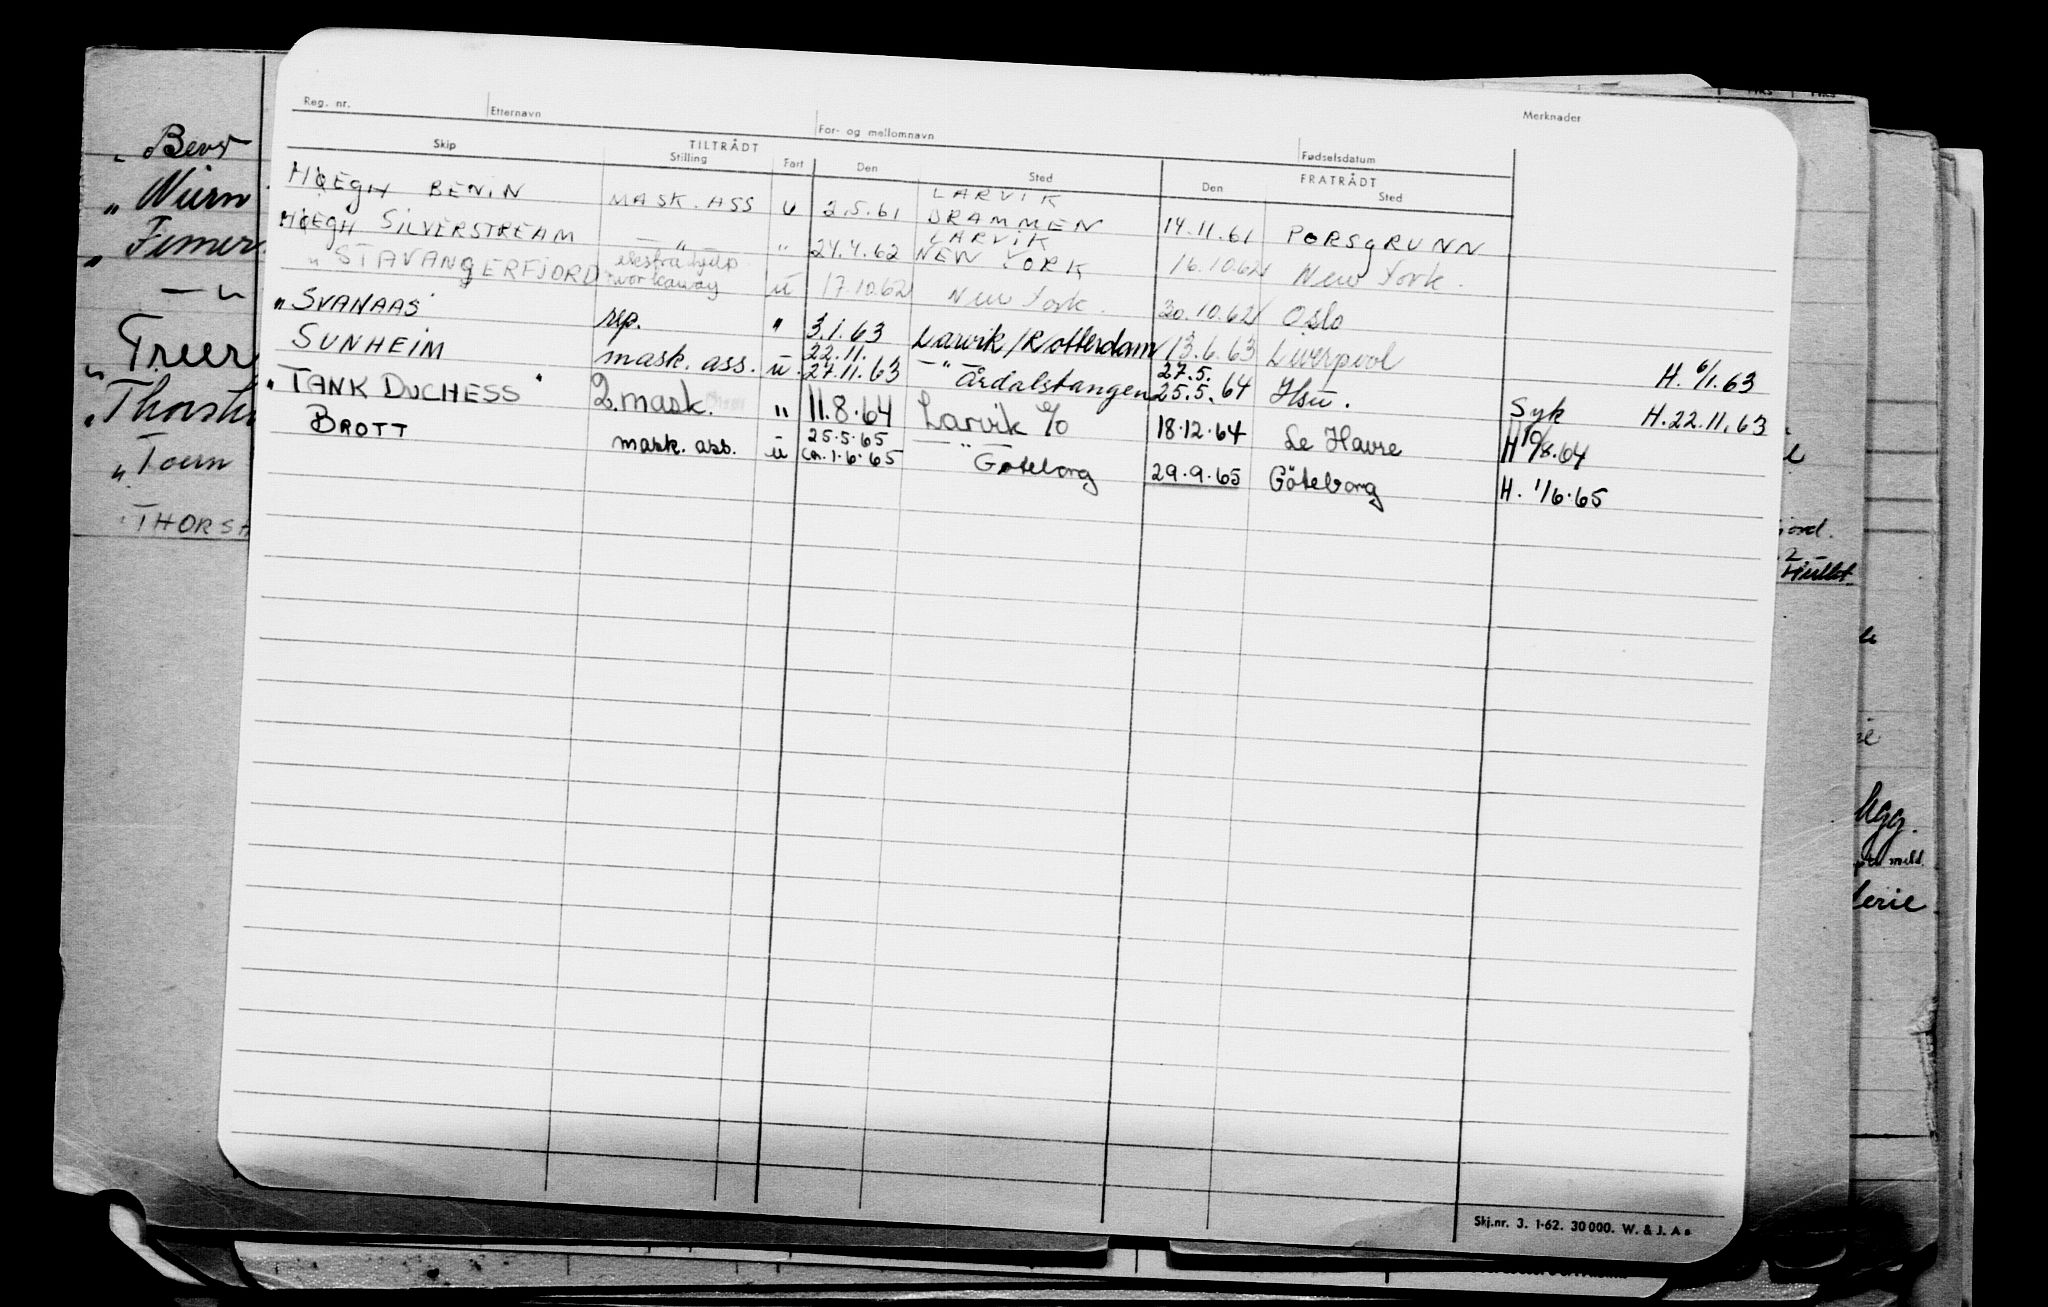 Reg. nr. Etternavn For- og mellomnavn Fødselsdatum Merknader
Skip TILTRÅDT FRATRÅDT
Stilling Fart Den Sted Den Sted
HØEGH BENIN MASK. ASS u 2.5.61 LARVIK DRAMMEN 14.11.61 PORSGRUNN
HØEGH SILVERSTREAM — " — " 24.4.62 LARVIK NEW YORK 16.10.62 New York.
" STAVANGERFJORD ekstrahjelp workaway u 17.10.62 New York. 30.10.62 Oslo
"SVANAAS" rep. " 3.1.63 Larvik/Rotterdam 13.6.63 Liverpool H. 6/1.63
SUNHEIM mask. ass. u. 22.11. 27.11.63 — " — Årdalstangen 27.5. 25.5.64 Hsu. Syk H.22.11.63
"TANK DUCHESS" 2.mask. " 11.8.64 Larvik 18.12.64 Le Havre H 10/8.64
BROTT mask. ass. u 25.5.65 ca.1.6.65 — " — Göteborg 29.9.65 Göteborg H. 1/6.65
Skj.nr. 3. 1-62. 30 000. W. & J. A s
" Bevr
" Wurn
" Femer
— " —
" Trier
" Thorsh
" Toern
" THORSH
Hullet
Mgg.